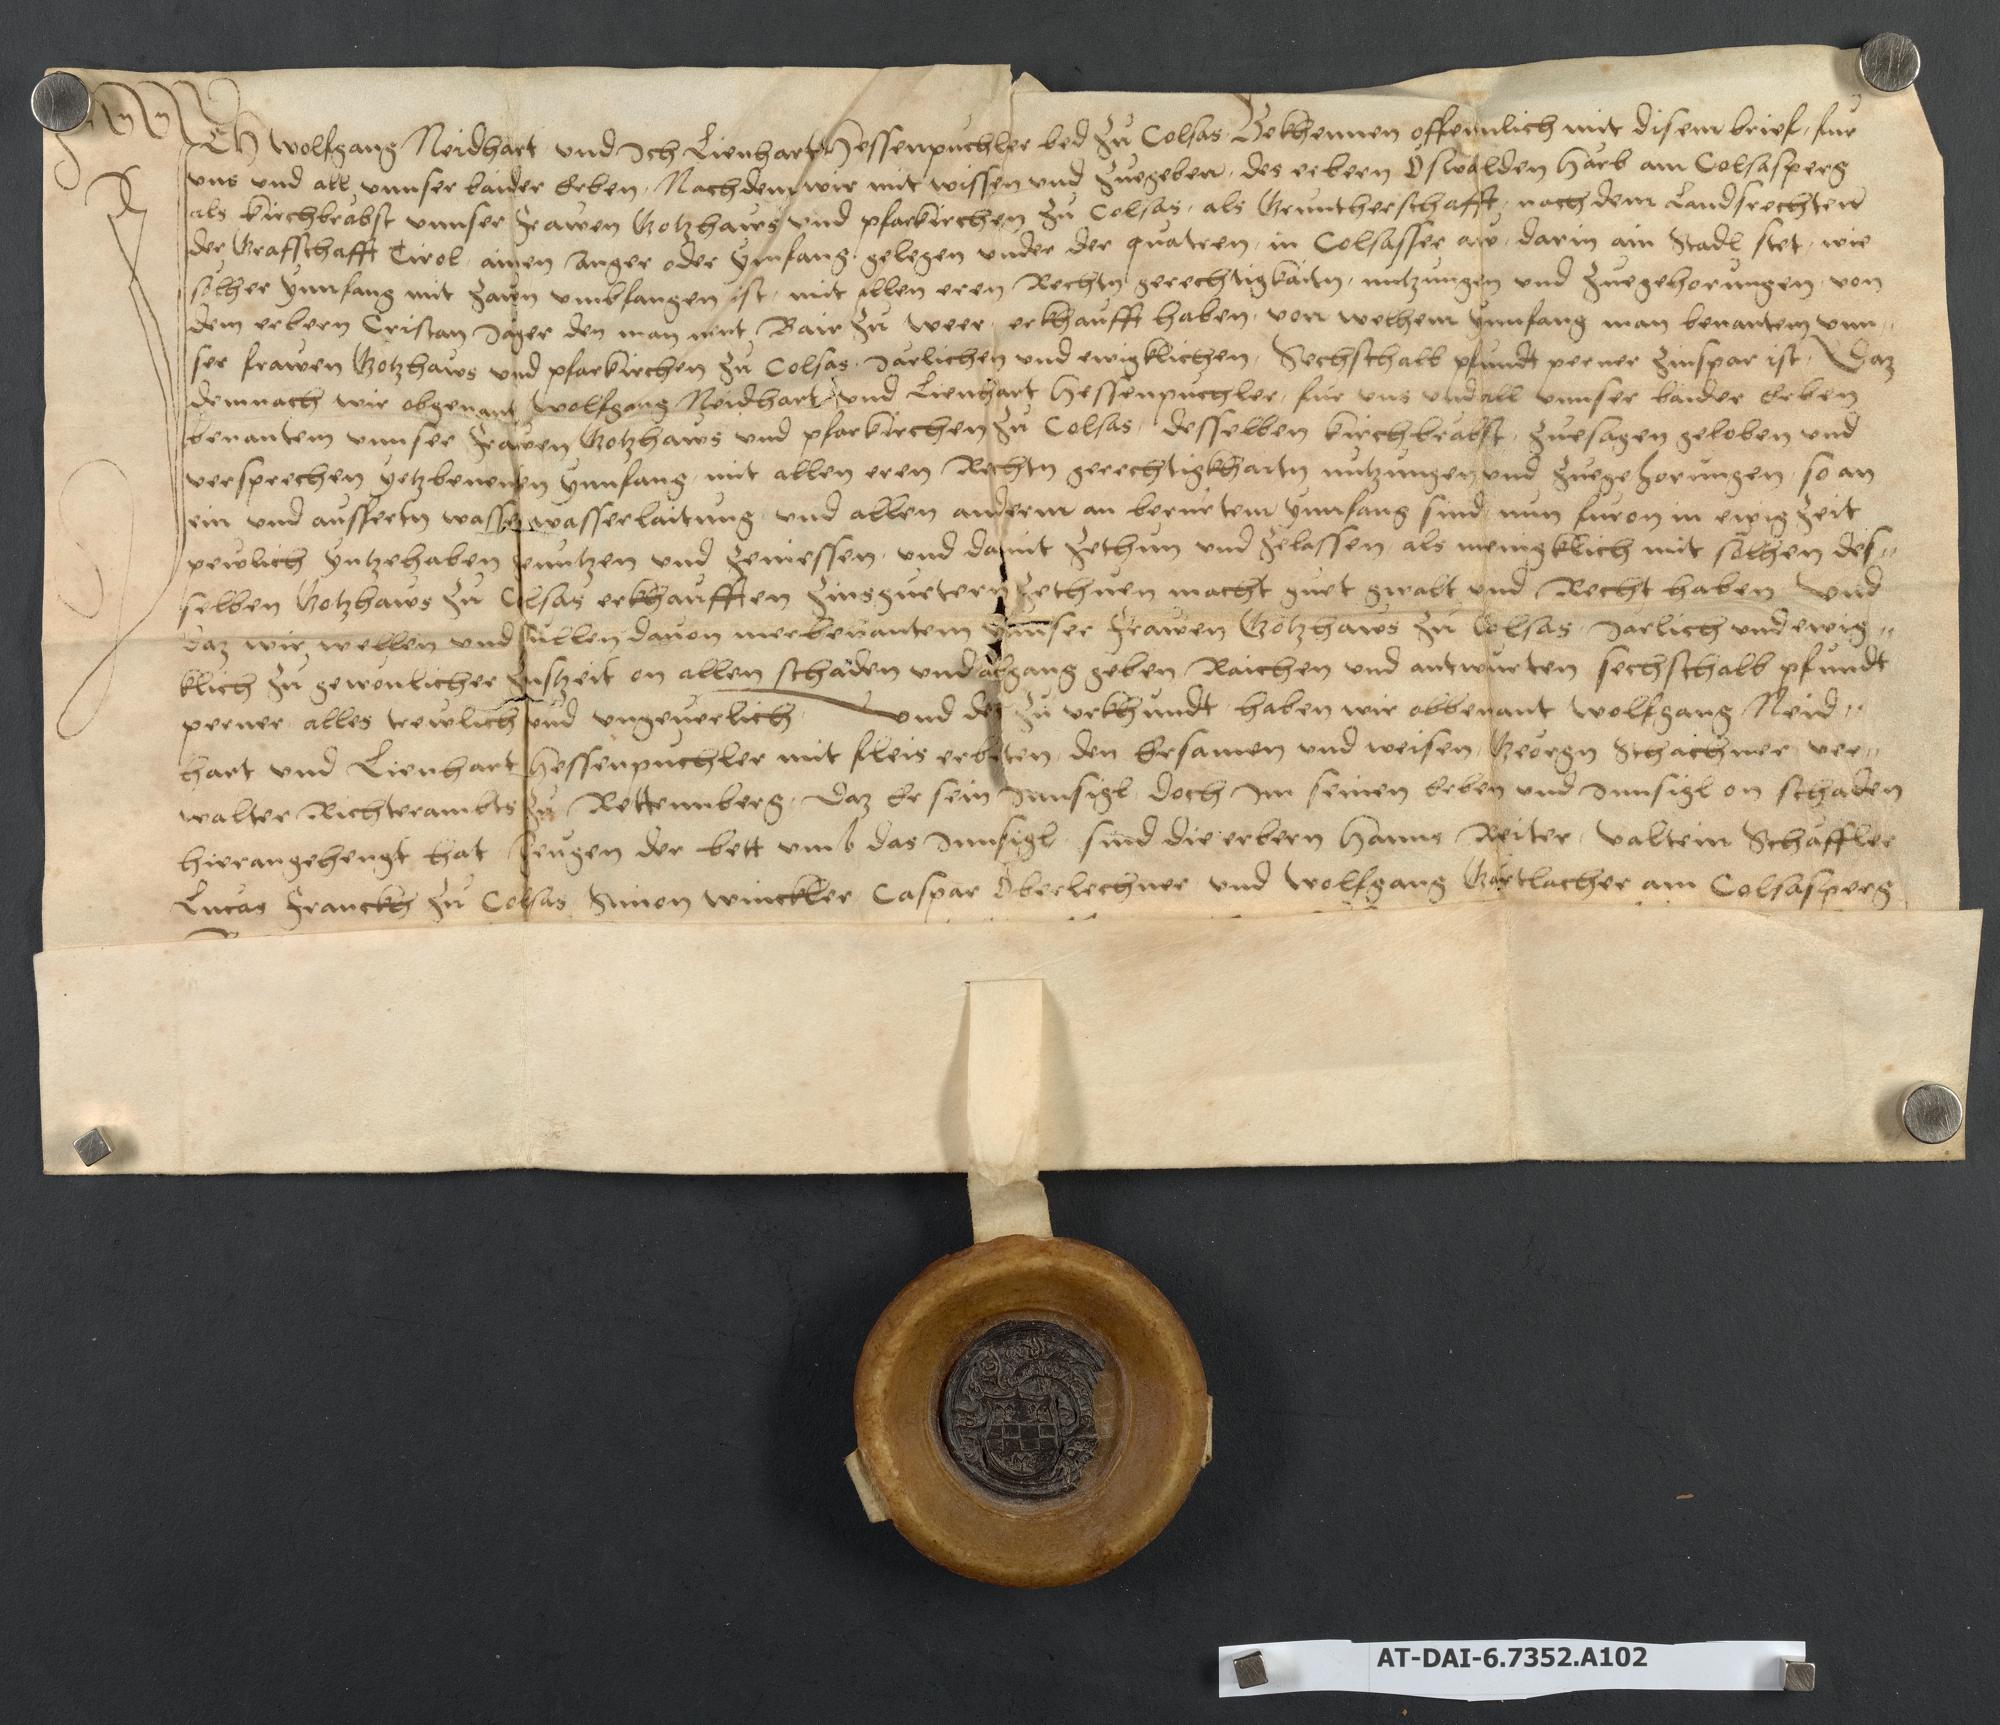 Ich Wolfgang Neidhart und Ich Lienhart Hessenpuchler bed zu Colsas Bekhennen offennlich mit disem brief, fur
uns und all unnser baider Erben, Nachdem wir mit wissen und zuegeben, des erbern Oswalden Harb am Colsasperg
als kirchbrabst unnser Frawen Gotzhaws und pfarkirchen zu Colsas, als Gruntherschafft, nach dem Landsrechten
der Grafschafft Tirol, ainen Anger oder ynnfang gelegen under der quatren, in Colsasser aw, darin ain Stadl stet, wie
solher ynnfang mit zawn umbfangen ist, mit allen eren Rechtn gerechtigkaitn, nutzungen und zuegehorungen, von
dem erbern Cristan Jager den man nent Bair zu Weer, erkhaufft haben, von welhem ynnfang man benantem unn-
ser frawen Gotzhaws und pfarkirchen zu Colsas, Jarlichen und ewigklichen, Sechsthalb pfundt perner zinspar ist, Daz
demnach wir obgenant Wolfgang Neidhart und Lienhart Hessenpuchler, fur uns und all unnser baider Erben
benantem unnser Frawen Gotzhaws und pfarkirchen zu Colsas, desselben kirchbrabst, zuesagen geloben und
versprechen yetzbenenten ynnfang, mit allen eren Rechtn gerechtigkhaitn nutzungen und zuegehorungen, so an
ein und aussfertn wasser wasserlaitung und allen anderm an berurtem ynnfang sind, nun furon in ewig zeit
pewlich ynzehaben zenutzen und zeniessen, und damit zethun und zelassen, als menigklich mit solhen des-
selben Gotzhaws zu Colsas erkhaufften zinsguetern zethuen macht guet gwalt und Recht haben Und
daz wir wellen und sullen davon merbenantem unnser Frawen Gotzhaws zu Colsas Jarlich und ewig-
klich zu gewonlicher zinszeit on allen schaden und abgang geben Raichen und antwurten sechsthalb pfundt
perner alles trewlich und ungeverlich Und des zu urkhundt haben wir obbenant Wolfgang Neid-
hart und Lienhart Hessenpuchler mit fleis erbeten, den Ersamen und weisen, Georgn Schachner ver-
walter Richterambts zu Rettennberg, daz Er sein Innsigl doch Im seinen Erben und Innsigl on schaden
hierangehengt hat zeugen der bett umb das Innsigl sind die erbern Hanns Reiter, Valtein Schaffler
Lucas Franckh zu Colsas Simon Winckler Caspar Oberlechner und Wolfgang Gartlacher am Colsasperg
AT-DAI-6.7352.A102